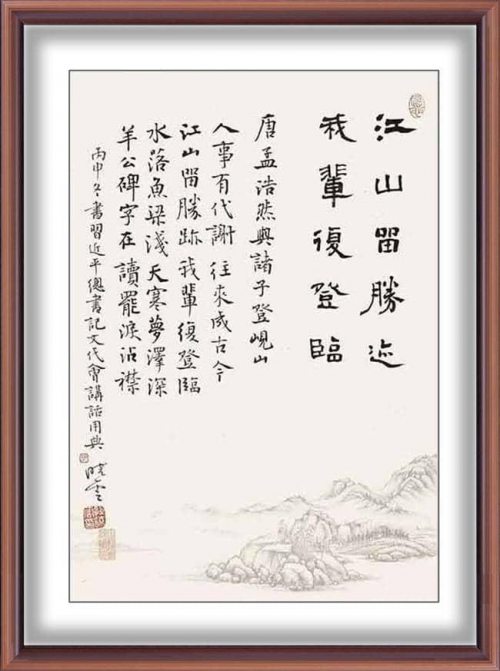 江山留勝迹
我輩復登臨
唐孟浩然與諸子登峴山
人事有代謝 往來成古今
江山留勝跡 我輩復登臨
水落魚梁淺 天寒夢澤深
羊公碑字在 讀罷淚沾襟
丙申冬書習近平總書記文代會講話用典 曉雲